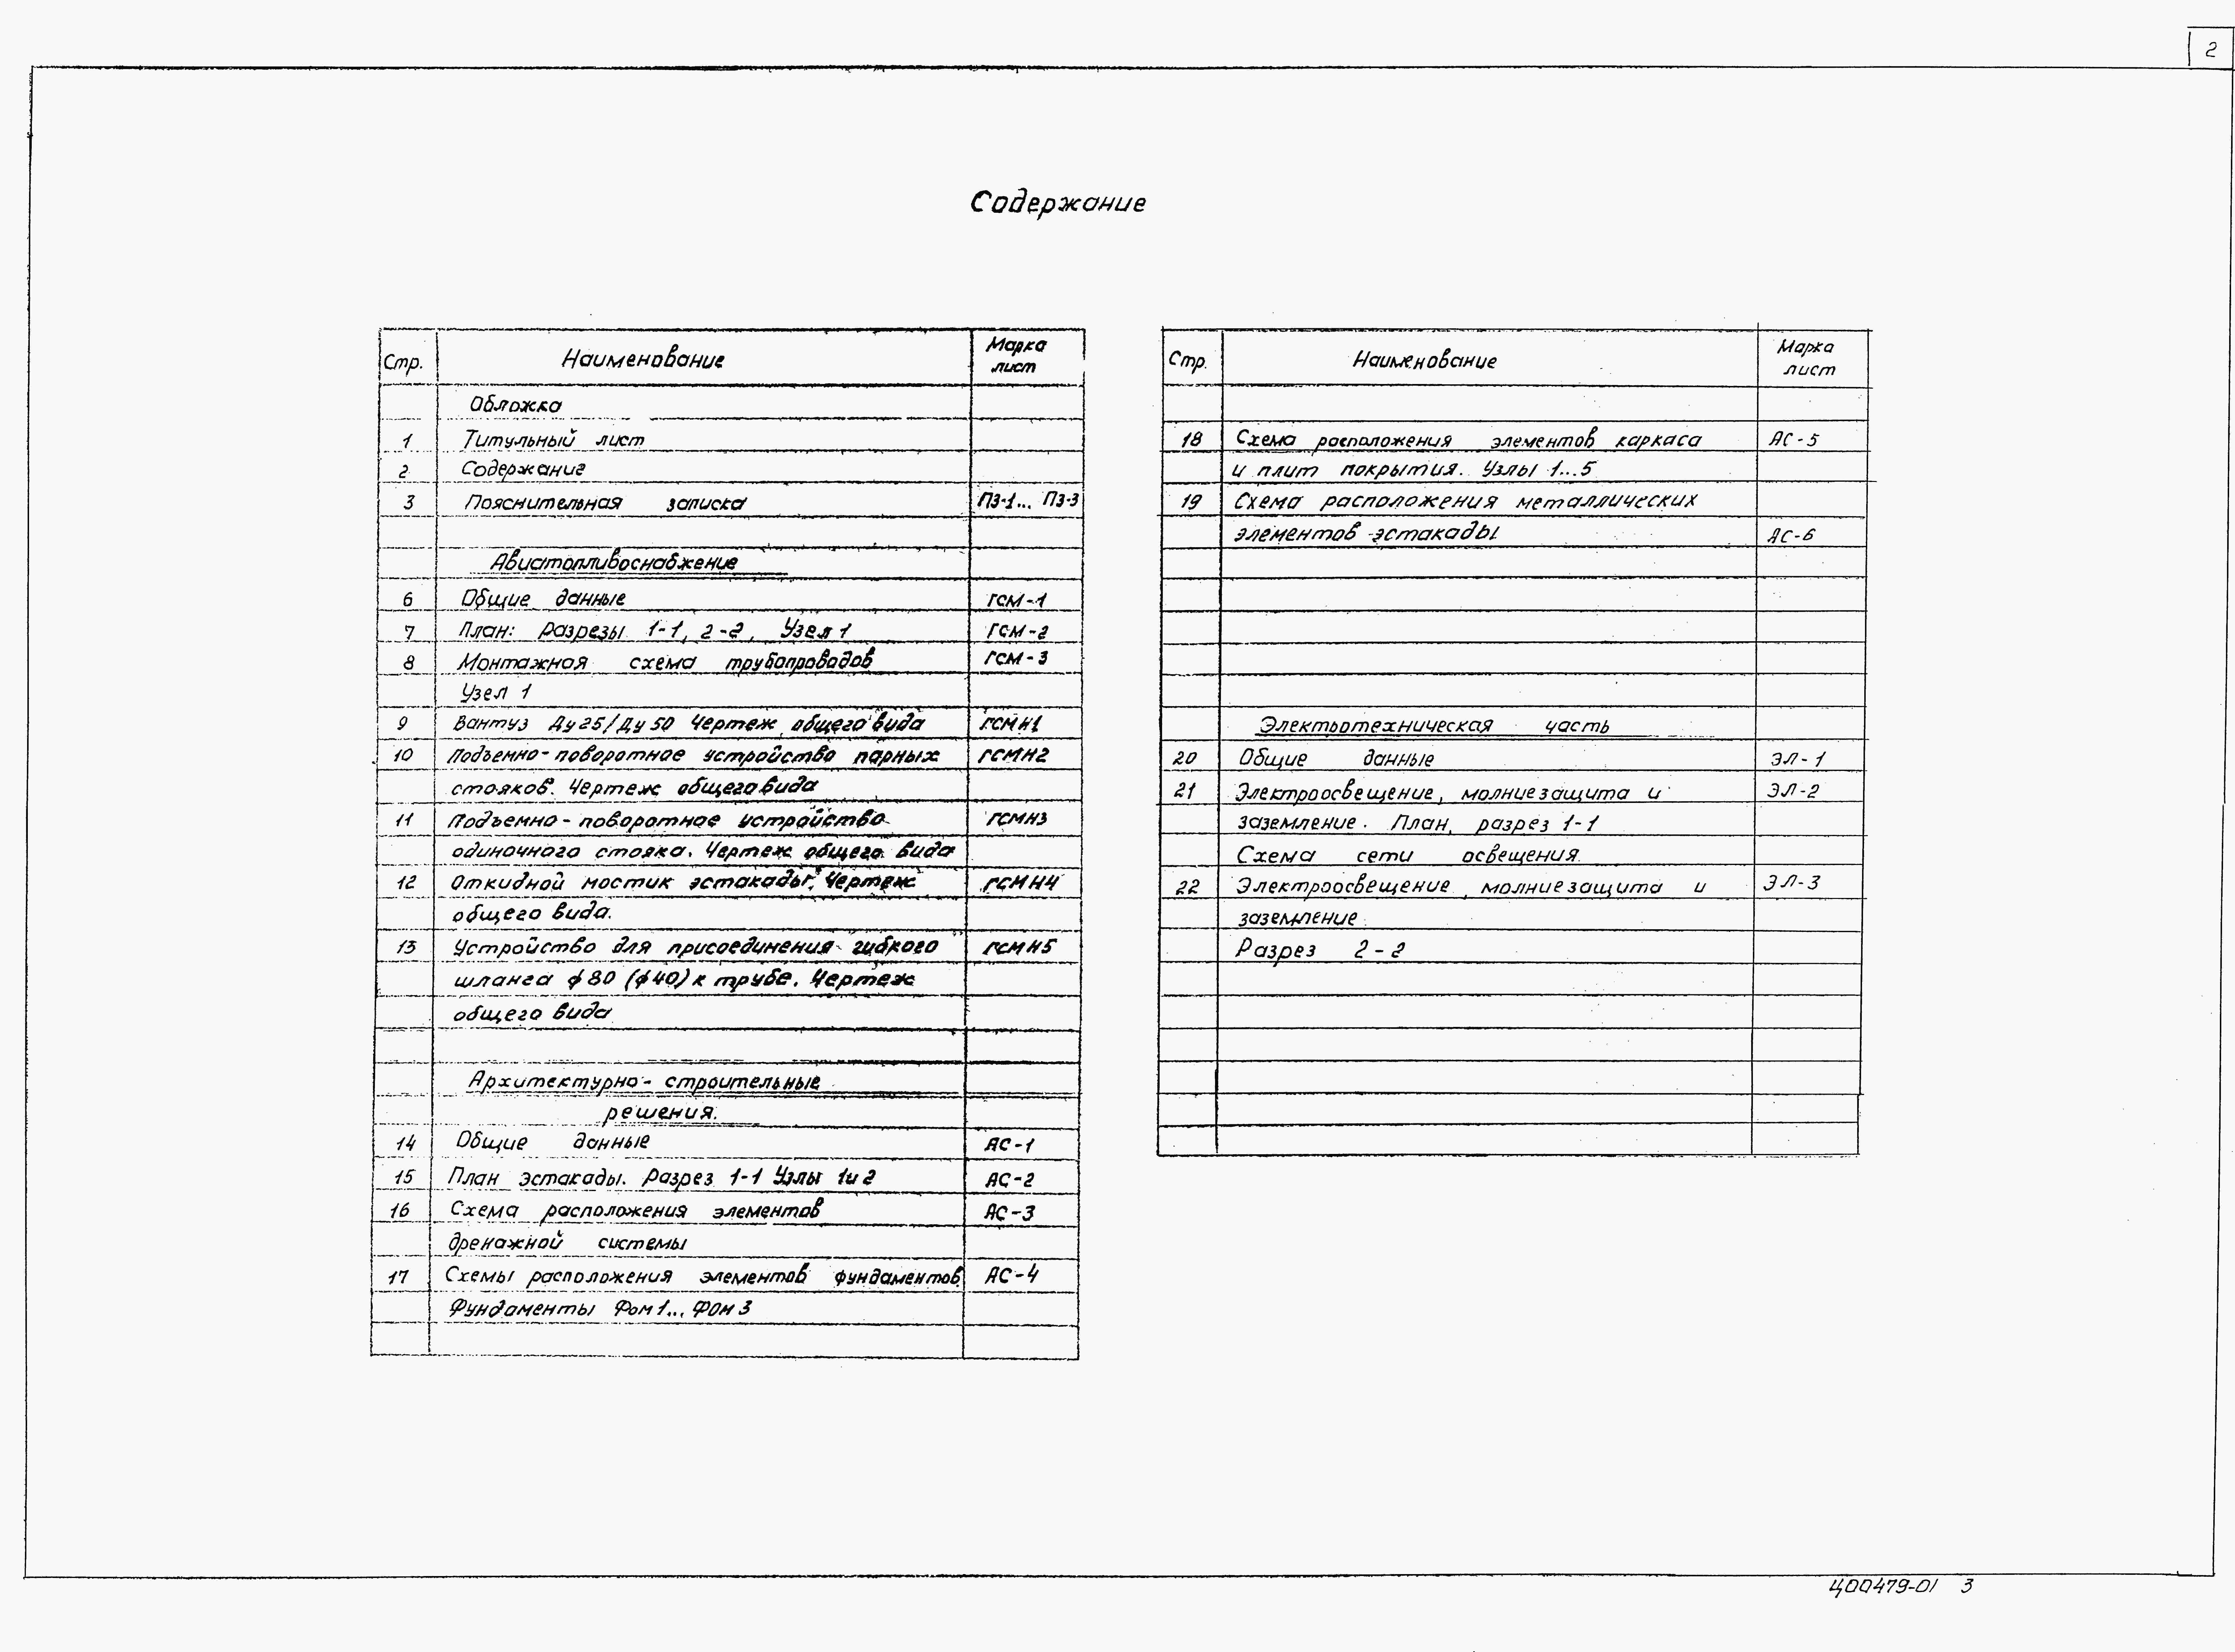 2
Содержание
Стр. Наименование Марка лист
Обложка
1 Титульный лист
2 Содержание
3 Пояснительная записка ПЗ-1... ПЗ-3
Авиатопливоснабжение
6 Общие данные ГСМ-1
7 План: разрезы 1-1, 2-2, Узел 1 ГСМ-2
8 Монтажная схема трубопроводов ГСМ-3
Узел 1
9 Вантуз Ду25/Ду50 Чертеж общего вида ГСМН1
10 Подъемно-поворотное устройство парных ГСМН2
стояков. Чертеж общего вида
11 Подъемно-поворотное устройство ГСМН3
одиночного стояка. Чертеж общего вида
12 Откидной мостик эстакады. Чертеж ГСМН4
общего вида.
13 Устройство для присоединения гибкого ГСМН5
шланга ϕ80 (ϕ40) к трубе. Чертеж
общего вида
Архитектурно-строительные
решения.
14 Общие данные АС-1
15 План эстакады. Разрез 1-1 Узлы 1и2 АС-2
16 Схема расположения элементов АС-3
дренажной системы
17 Схемы расположения элементов фундаментов АС-4
Фундаменты Фом1... Фом3
Стр. Наименование Марка лист
18 Схема расположения элементов каркаса АС-5
и плит покрытия. Узлы 1...5
19 Схема расположения металлических
элементов эстакады АС-6
Электротехническая часть
20 Общие данные ЭЛ-1
21 Электроосвещение, молниезащита и ЭЛ-2
заземление. План, разрез 1-1
Схема сети освещения
22 Электроосвещение, молниезащита и ЭЛ-3
заземление
Разрез 2-2
Ц00479-01 3